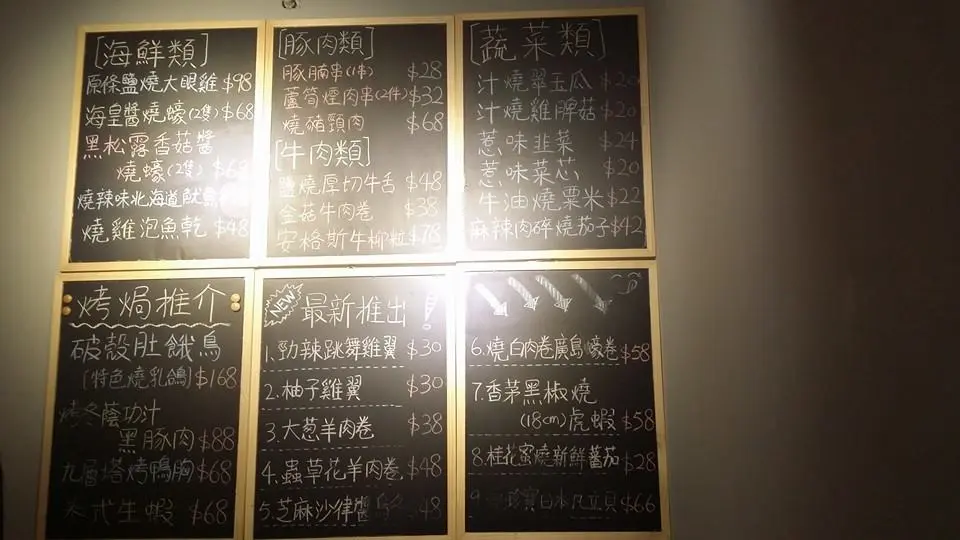 [海鮮類]
原條鹽燒大眼雞 $98
海皇醬燒蠔(2隻) $68
黑松露香菇醬
燒蠔(2隻)
燒辣味北海道魷魚
燒雞泡魚乾 $48
[豚肉類]
豚腩串(1串) $28
蘆筍煙肉串(2件) $32
燒豬頸肉 $68
[牛肉類]
鹽燒厚切牛舌 $48
金菇牛肉卷 $38
安格斯牛柳粒 $78
[蔬菜類]
汁燒翠玉瓜 $20
汁燒雞脾菇 $20
惹味韭菜 $24
惹味菜芯 $20
牛油燒粟米 $22
麻辣肉碎燒茄子 $42
烤焗推介
破殼肚餓鳥
(特色燒乳鴿) $168
烤冬蔭功汁
黑豚肉 $88
九層塔烤鴨胸 $68
式生蝦 $68
NEW 最新推出!
1.勁辣跳舞雞翼 $30
2.柚子雞翼 $30
3.大葱羊肉卷 $38
4.蟲草花羊肉卷 $48
5.芝麻沙律醬 48
6.燒白肉卷廣島蠔卷 $58
7.香茅黑椒燒
(18cm)虎蝦 $58
8.桂花蜜燒新鮮蕃茄 $28
9. 日本 貝 $66